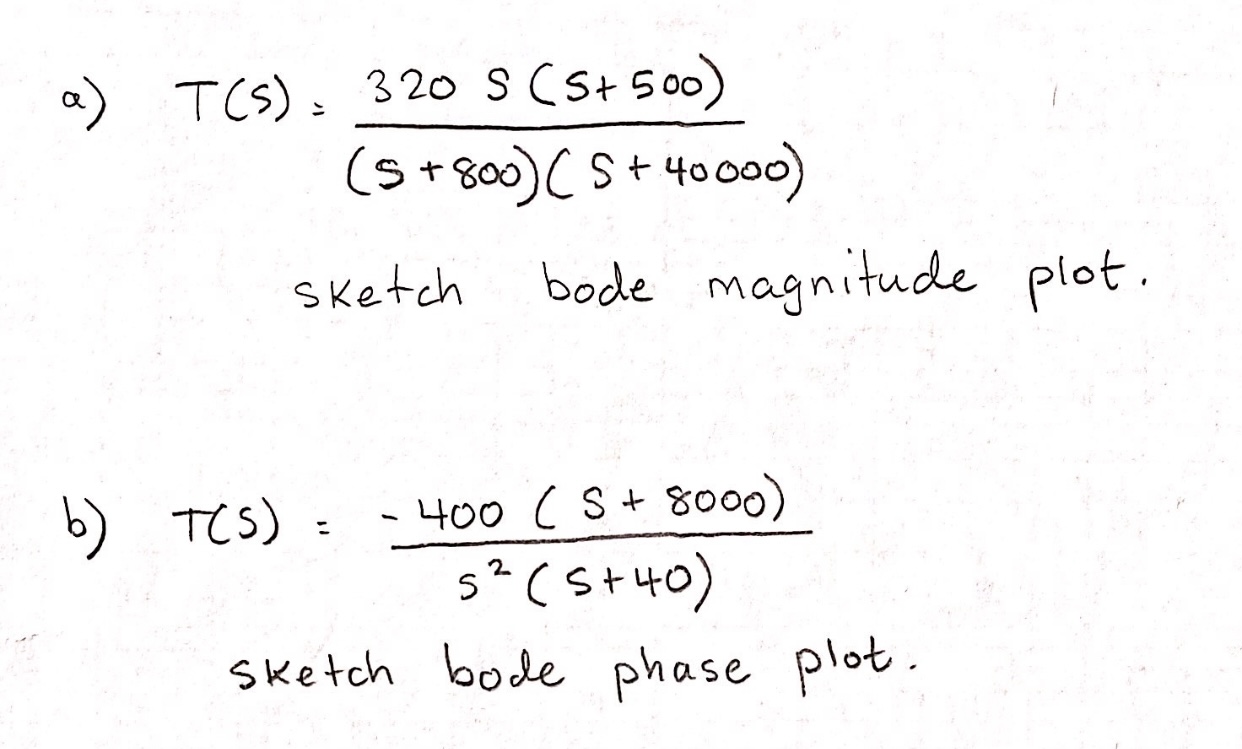 a) T(S) = 320 S (S + 500) / (S + 800) (S + 40000)
sketch bode magnitude plot.
b) T(S) = - 400 (S + 8000) / S² (S + 40)
sketch bode phase plot.